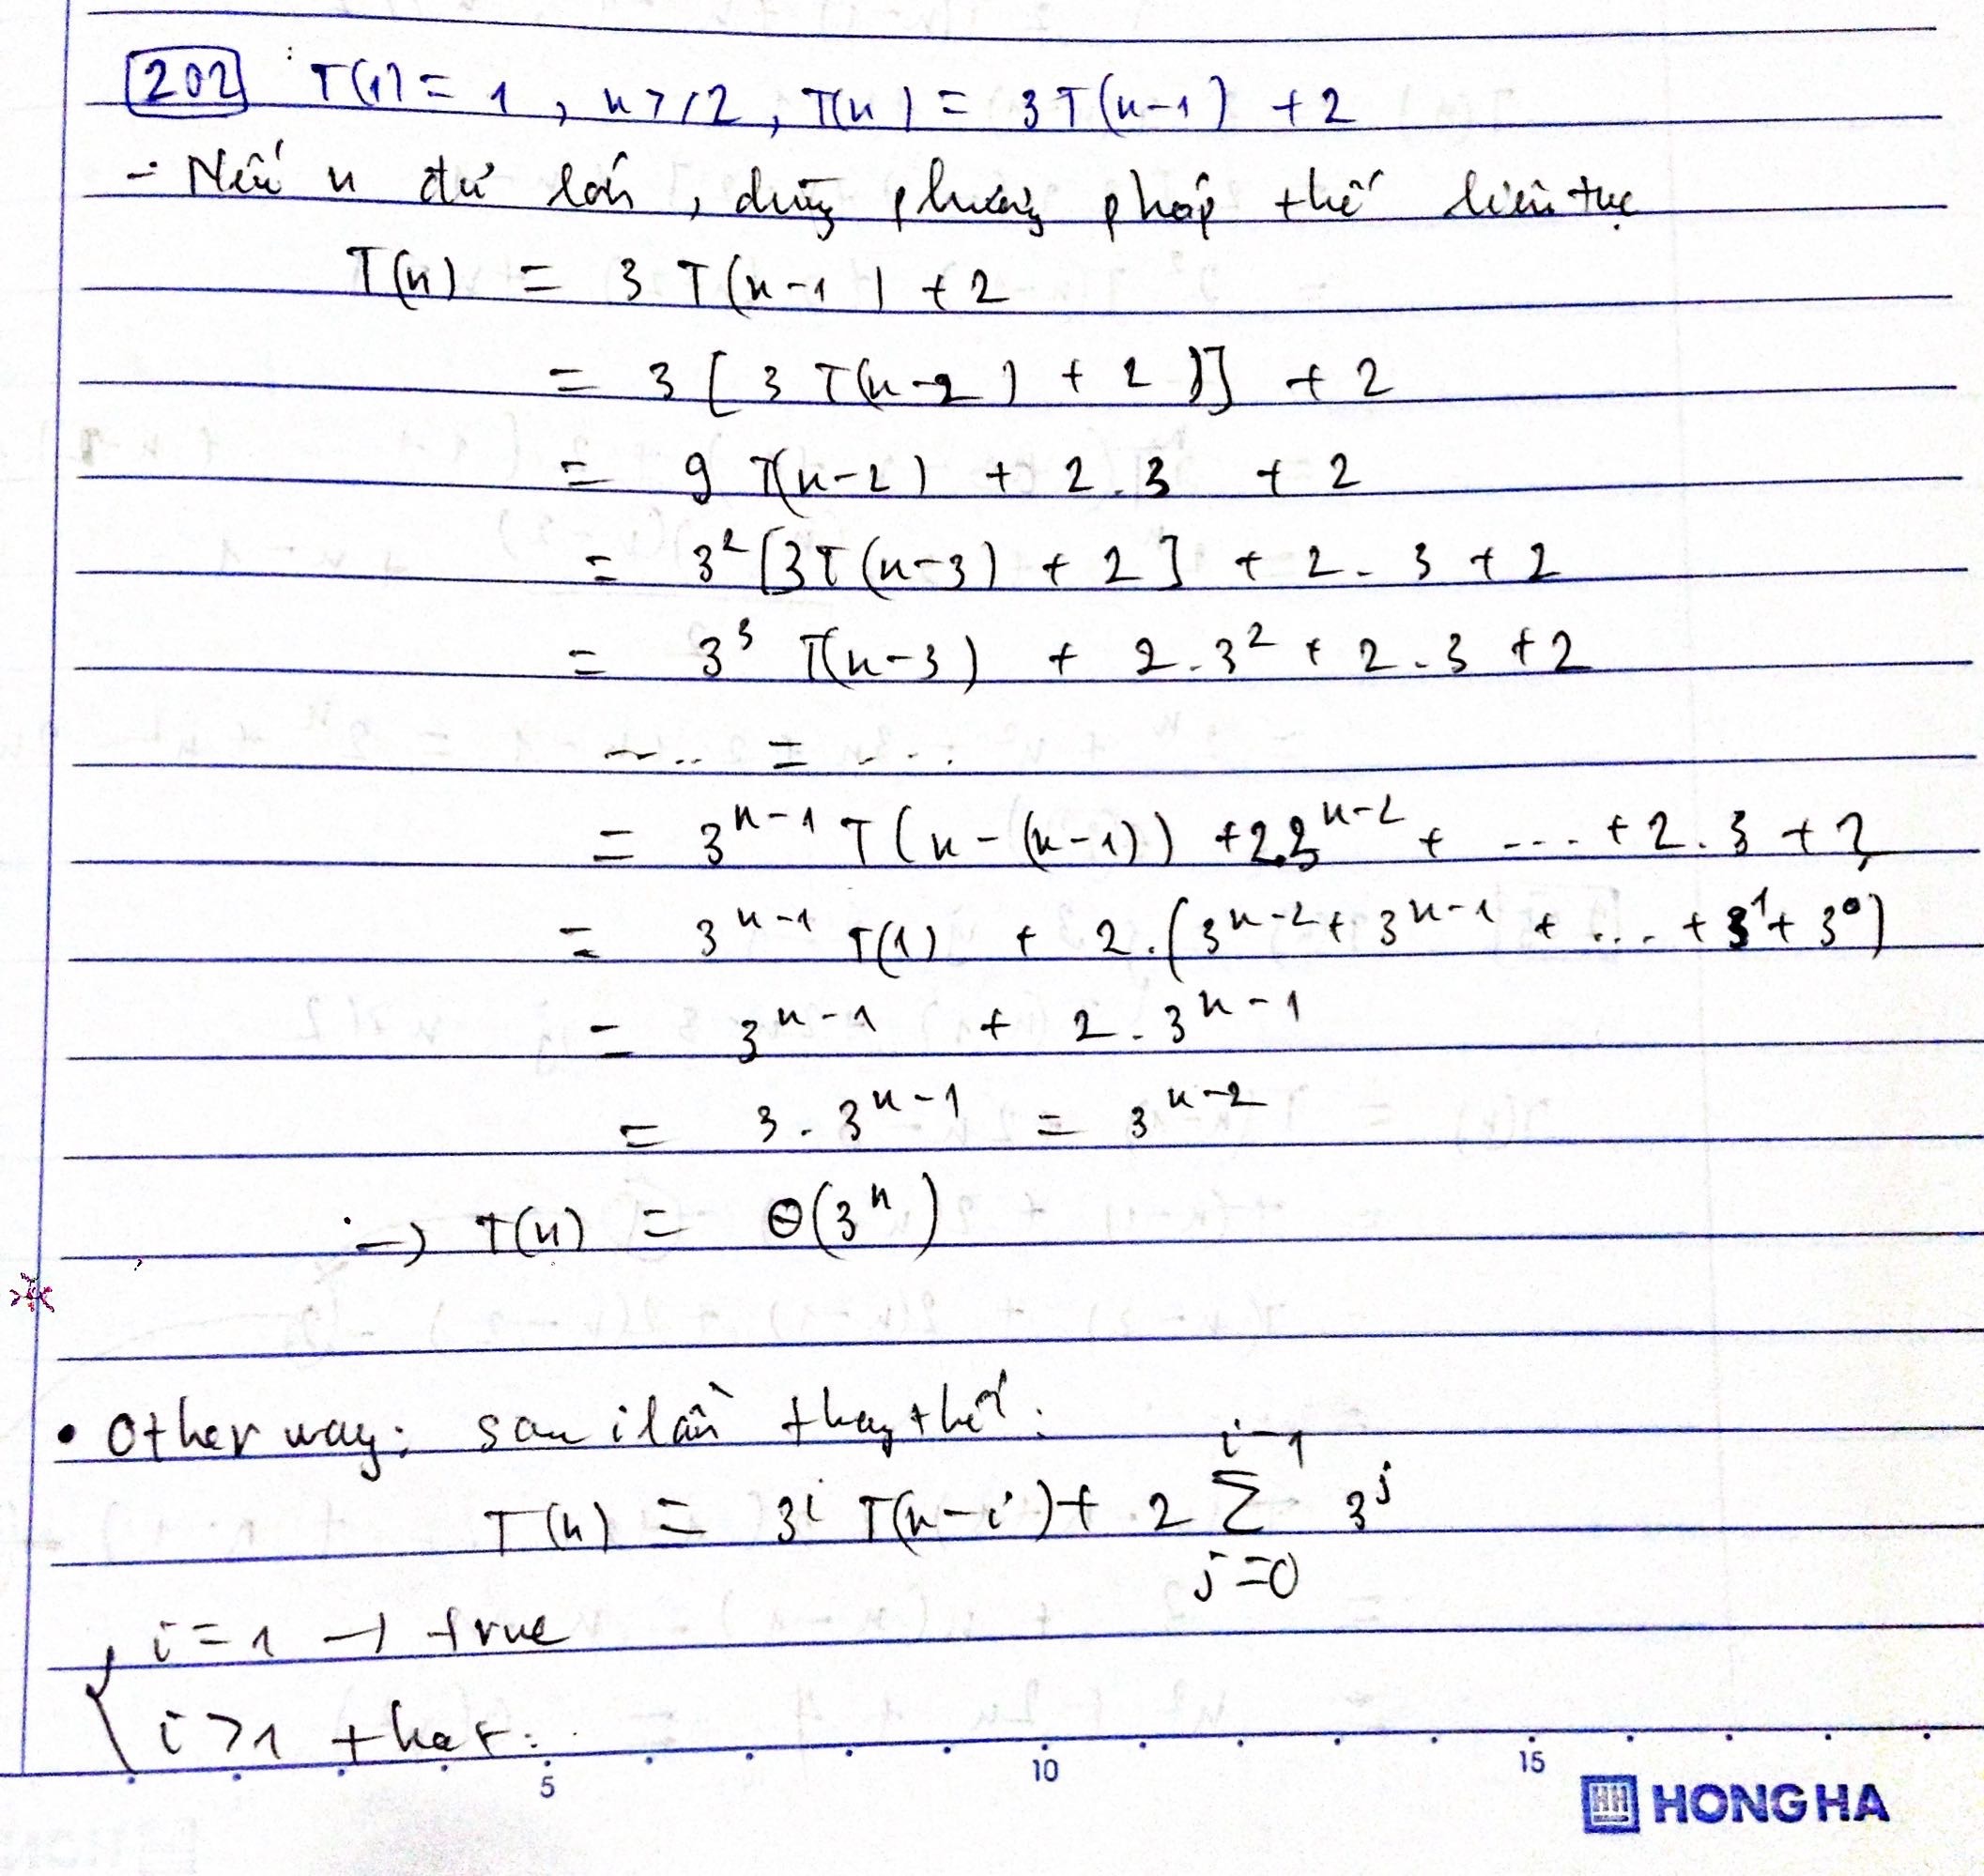 202 T(1) = 1, n >/ 2, T(n) = 3T(n-1) + 2
- Nếu n đủ lớn, dùng phương pháp thế liên tục
T(n) = 3 T(n-1) + 2
= 3 [ 3 T(n-2) + 2 )] + 2
= 9 T(n-2) + 2.3 + 2
= 3² [3T(n-3) + 2] + 2.3 + 2
= 3³ T(n-3) + 2.3² + 2.3 + 2
... = ...
= 3ⁿ⁻¹ T(n-(n-1)) + 2.3ⁿ⁻² + .... + 2.3 + 2
= 3ⁿ⁻¹ T(1) + 2.(3ⁿ⁻² + 3ⁿ⁻¹ + ... + 3¹ + 3⁰)
= 3ⁿ⁻¹ + 2.3ⁿ⁻¹
= 3.3ⁿ⁻¹ = 3ⁿ⁻²
→ T(n) = Θ(3ⁿ)
• Other way: sau i lần thay thế:
T(n) = 3ⁱ T(n-i) + 2 Σ 3ʲ
i-1
j=0
{ i = 1 → true
i > 1
5 10 15
HH HONG HA